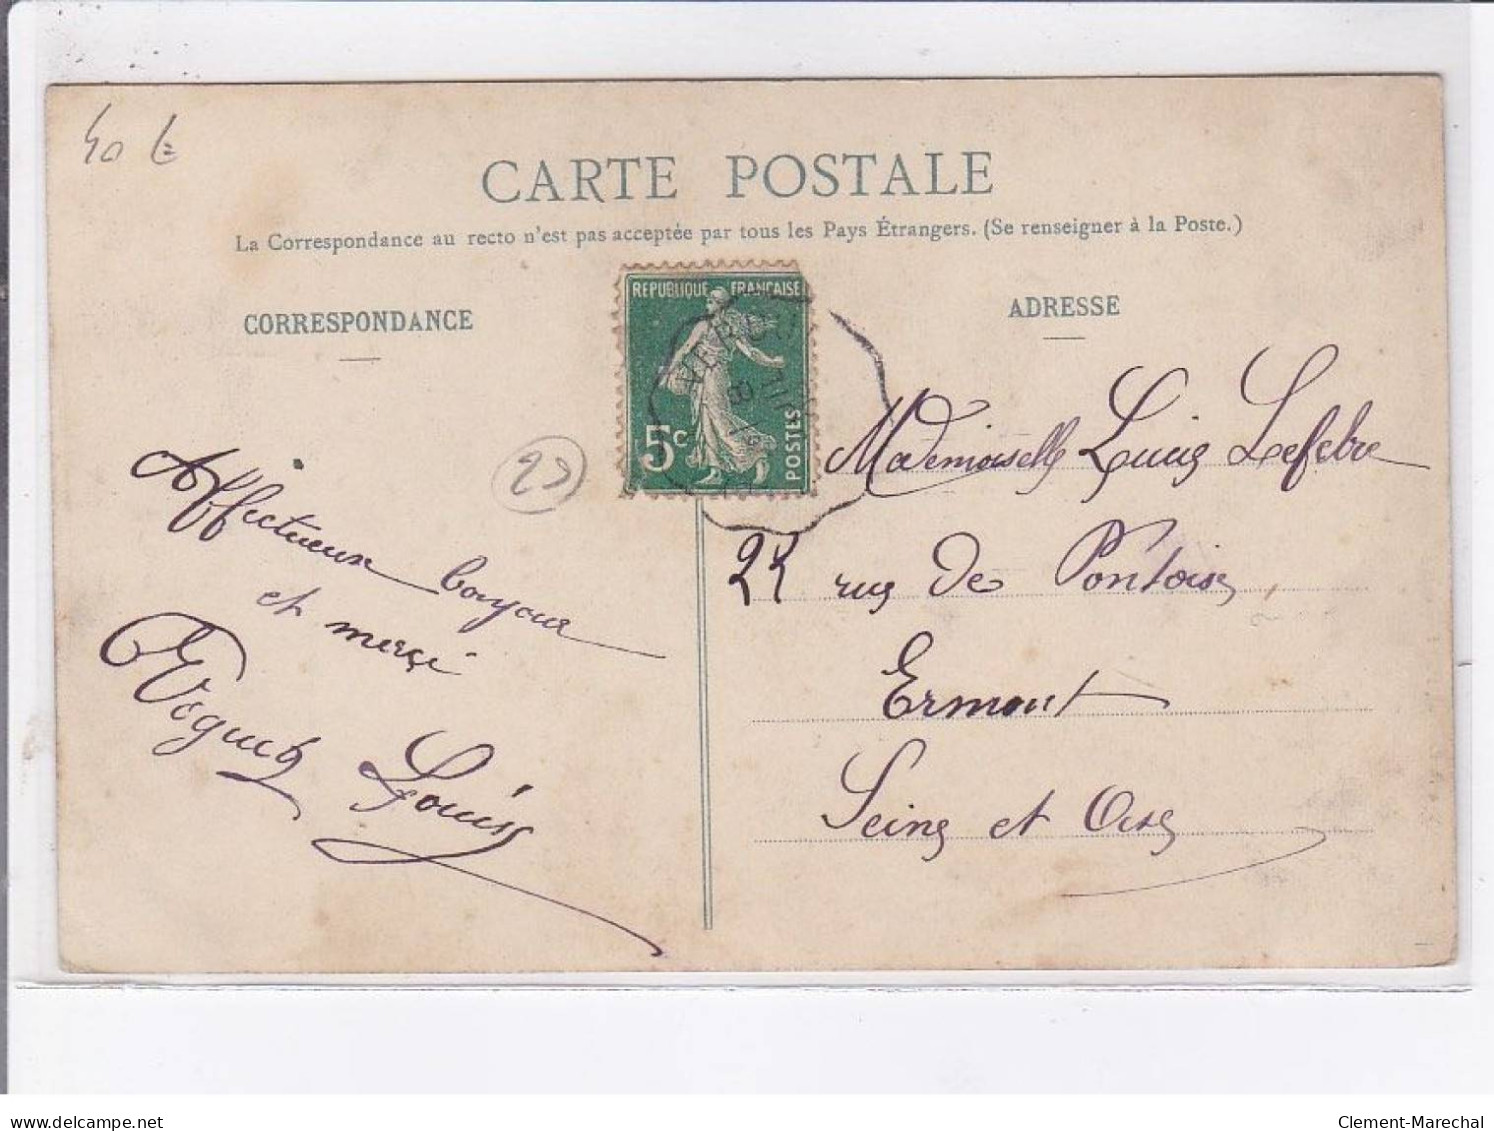 40 €
CARTE POSTALE
La Correspondance au recto n'est pas acceptée par tous les Pays Étrangers. (Se renseigner à la Poste.)
CORRESPONDANCE
ADRESSE
REPUBLIQUE FRANÇAISE
5c
POSTES
23
Affectueux bonjour
et merci
Louis
Mademoiselle Lucie Lefebre
22 rue de Pontoise
Ermont
Seine et Oise
delcampe.net
Clement-Marechal